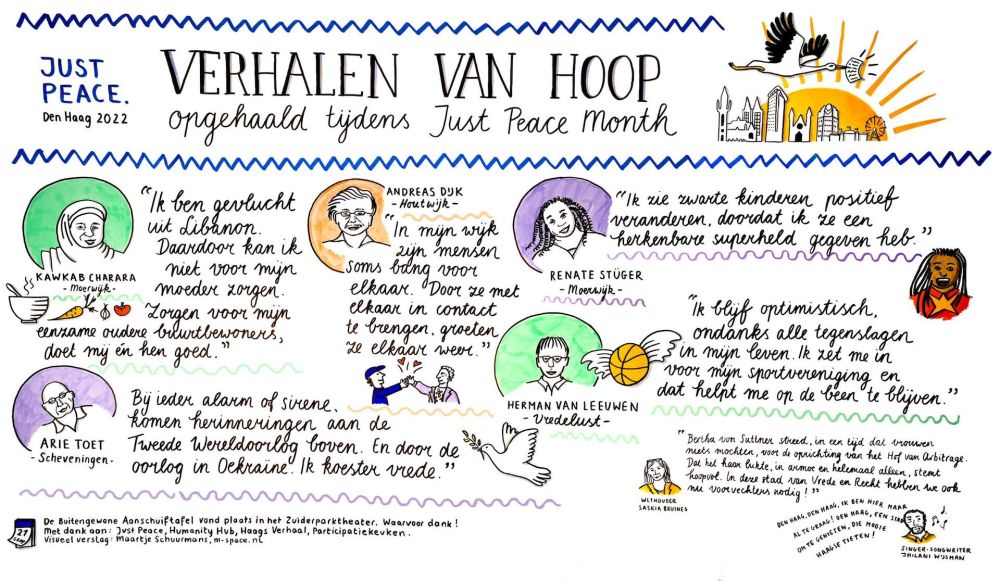 JUST
PEACE.
Den Haag 2022
VERHALEN VAN HOOP
opgehaald tijdens Just Peace Month
KAWKAB CHARARA
- Moerwijk -
"Ik ben gevlucht
uit Libanon.
Daardoor kan ik
niet voor mijn
moeder zorgen.
Zorgen voor mijn
eenzame oudere buurtbewoners,
doet mij én hen goed."
ANDREAS DIJK
- Houtwijk -
"In mijn wijk
zijn mensen
soms bang voor
elkaar. Door ze met
elkaar in contact
te brengen, groeten
ze elkaar weer."
RENATE STÜGER
- Moerwijk -
"Ik zie zwarte kinderen positief
veranderen, doordat ik ze een
herkenbare superheld gegeven heb."
HERMAN VAN LEEUWEN
- Vredelust -
"Ik blijf optimistisch,
ondanks alle tegenslagen
in mijn leven. Ik zet me in
voor mijn sportvereniging en
dat helpt me op de been te blijven."
ARIE TOET
- Scheveningen -
Bij ieder alarm of sirene,
komen herinneringen aan de
Tweede Wereldoorlog boven. En door de
oorlog in Oekraïne. Ik koester vrede."
WETHOUDER
SASKIA BRUINES
"Bertha von Suttner streed, in een tijd dat vrouwen
niets mochten, voor de oprichting van het Hof van Arbitrage.
Dat het haar lukte, in armoe en helemaal alleen, stemt
hoopvol. In deze stad van Vrede en Recht hebben we ook
nu voorvechters nodig!"
DEN HAAG, DEN HAAG, IK BEN HIER MAAR
AL TE GRAAG! DEN HAAG, EEN STAD
OM TE GENIETEN, DIE MOOIE
HAAGSE TIETEN!
SINGER-SONGWRITER
JHILANI WIJSMAN
21
De Buitengewone Aanschuiftafel vond plaats in het Zuiderparktheater. Waarvoor dank!
Met dank aan: Just Peace, Humanity Hub, Haags Verhaal, Participatiekeuken.
Visueel verslag: Maartje Schuurmans, m-space.nl